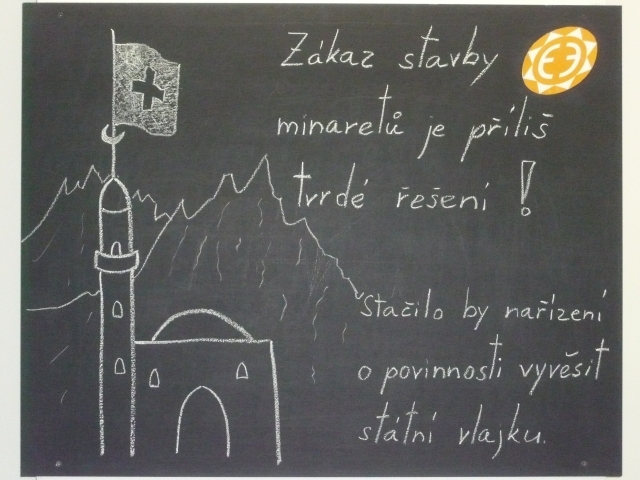 Zákaz stavby
minaretů je příliš
tvrdé řešení!
Stačilo by nařízení
o povinnosti vyvěsit
státní vlajku.